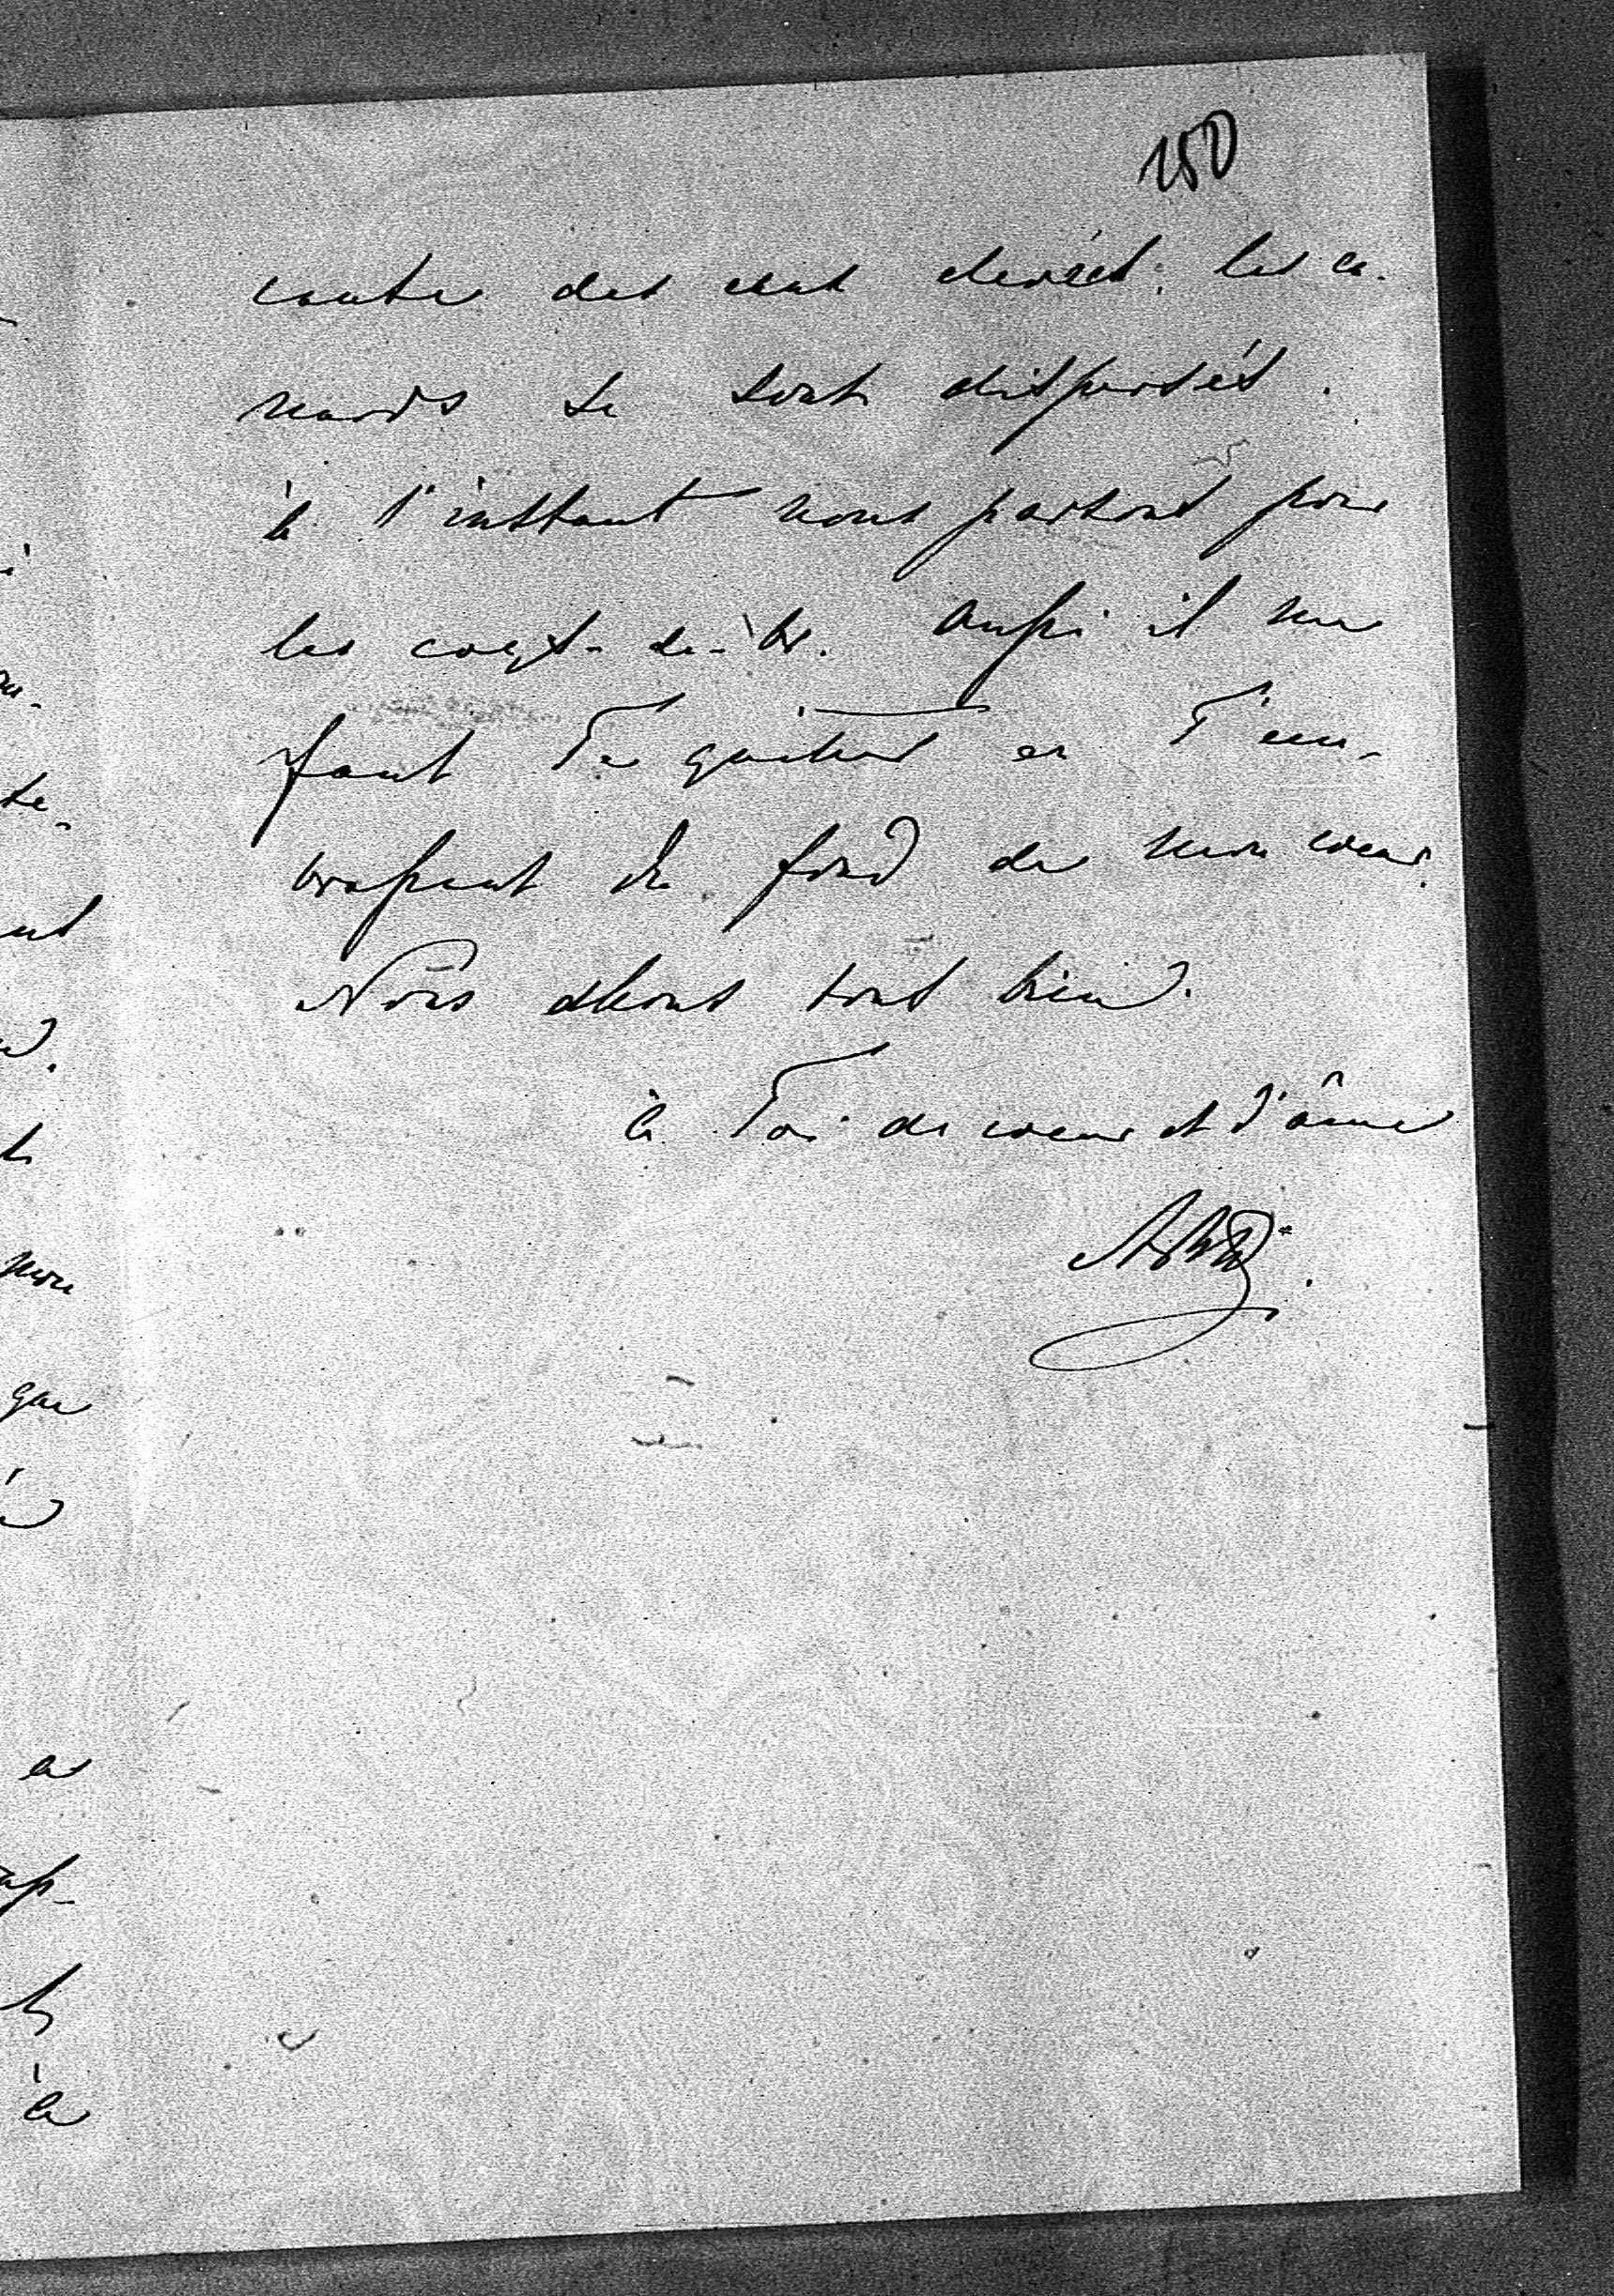 150
cause des eaux élevées; les ca-
nards se sont dispersés.
à l'instant nous partons pour
les coqs-de-br. Aussi il me
faut Te quitter en T'em-
brassant du fond de mon coeur.
Nous allons tous bien.
à Toi de coeur et d'âme